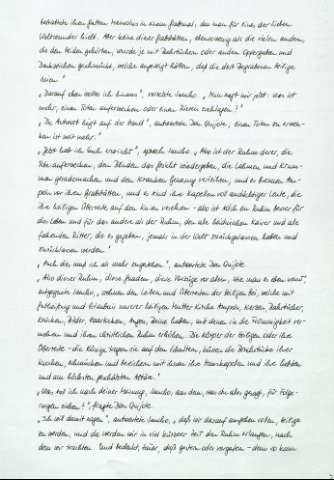 bestattete ihren Gatten Mausolus in einem Grabmal, das man für eines der sieben
Weltwunder hielt. Aber keine dieser Grabstätten, ebensowenig als die vielen andern,
die den Heiden gehörten, wurde je mit Leichtüchern oder andern Opfergaben und
Denkzeichen geschmückt, welche angezeigt hätten, daß die dort Begrabenen Heilige
waren."
„Darauf eben wollte ich hinaus", versetzte Sancho. „Nun sagt mir jetzt: was ist
mehr, einen Toten auferwecken oder einen Riesen erschlagen?"
„Die Antwort liegt auf der Hand", antwortete Don Quijote, „einen Toten zu erwek-
ken ist weit mehr."
„Jetzt hab ich Euch erwischt", sprach Sancho. „Also ist der Ruhm derer, die
Tote auferwecken, den Blinden das Gesicht wiedergeben, die Lahmen und Krum-
men geradmachen und den Kranken Genesung verleihen, und es brennen Lam-
pen vor ihren Grabstätten, und es sind ihre Kapellen voll andächtiger Leute, die
ihre heiligen Überreste auf den Knien verehren – also ist solch ein Ruhm besser für
dies Leben und für das andre als der Ruhm, den alle heidnischen Kaiser und alle
fahrenden Ritter, die es gegeben, jemals in der Welt zurückgelassen haben und
zurücklassen werden."
„Auch dies muß ich als wahr zugestehen", antwortete Don Quijote.
„Also dieser Ruhm, diese Gnaden, diese Vorzüge vor allen, wie man es eben nennt",
entgegnete Sancho, „wohnen den Leibern und Überresten der Heiligen bei, welche mit
Gutheißung und Erlaubnis unserer heiligen Mutter Kirche Lampen, Kerzen, Leichtücher,
Krücken, Bilder, Haarlocken, Augen, Beine haben, mit denen sie die Frömmigkeit ver-
mehren und ihren christlichen Ruhm erhöhen. Die Körper der Heiligen oder ihre
Überreste – die Könige tragen sie auf den Schultern, küssen die Bruchstücke ihrer
Knochen, schmücken und bereichern mit ihnen ihre Hauskapellen und ihre liebsten
und am höchsten geschätzten Altäre."
„Was soll ich nach deiner Meinung, Sancho, aus dem, was du eben gesagt, für Folge-
rungen ziehen?", fragte Don Quijote.
„Ich will damit sagen", antwortete Sancho, „daß wir darauf ausgehen sollten, Heilige
zu werden, und da werden wir in viel kürzerer Zeit den Ruhm erlangen, nach
dem wir trachten. Und bedenkt, Señor, daß gestern oder vorgestern – denn so kann